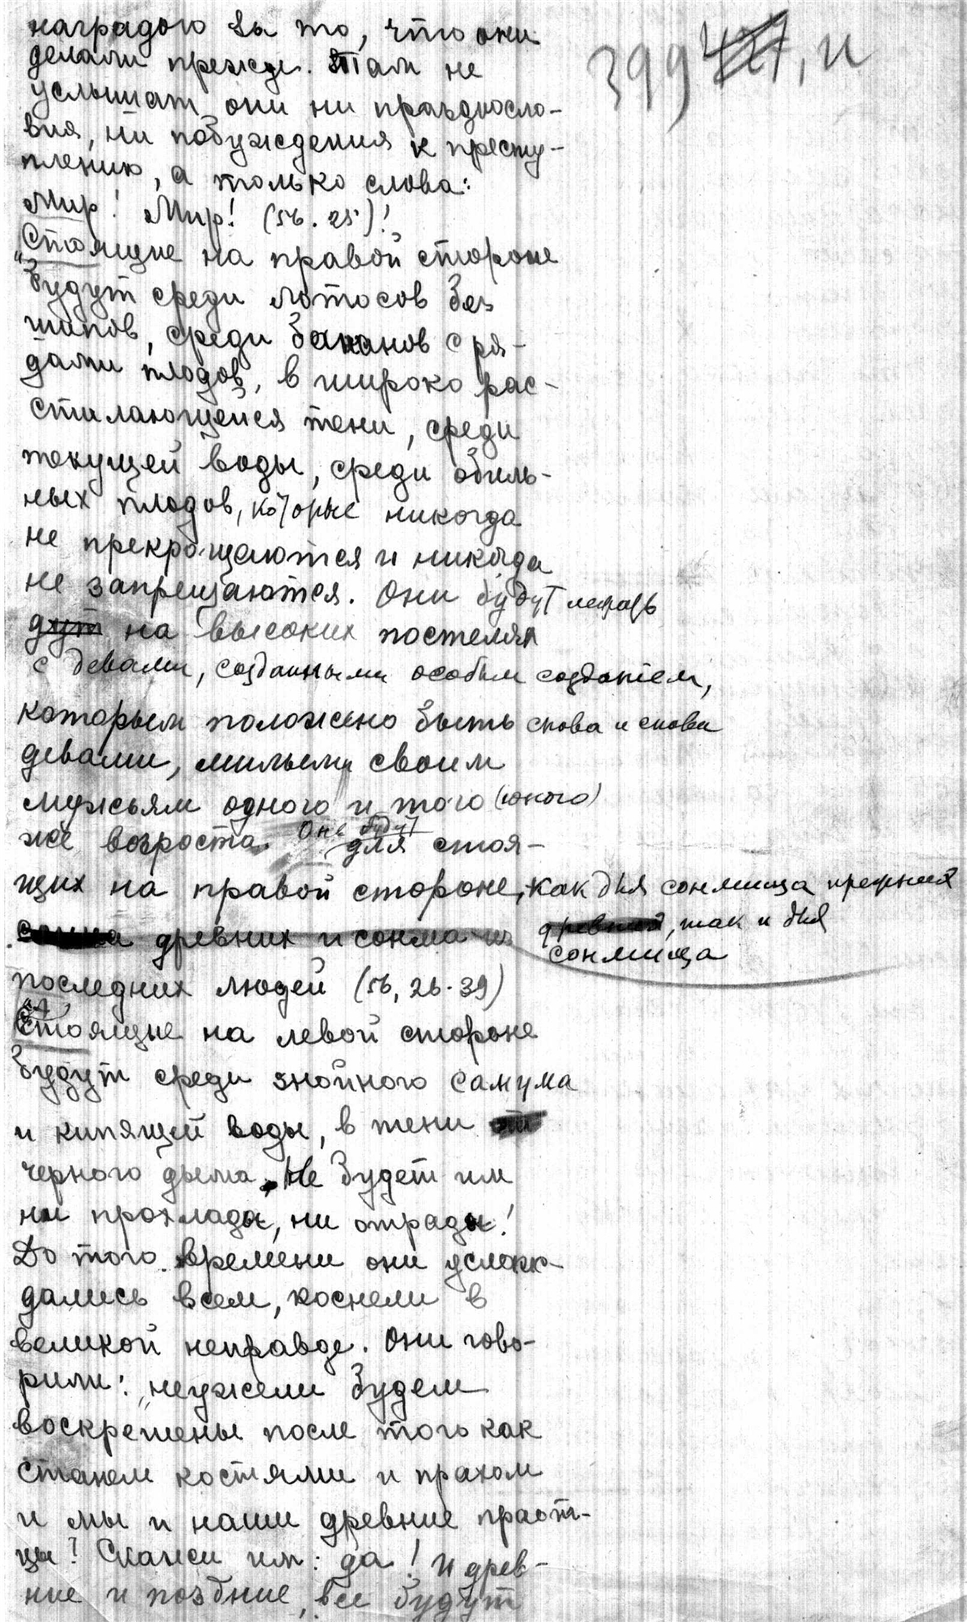 наградою за то, что они
399, и
делали прежде. Там не
услышат они ни праздносло-
вия, ни побуждения к престу-
плению, а только слова:
Мир! Мир! (56. 25)!
"Стоящие на правой стороне
будут среди лотосов без
шипов, среди бананов с ря-
дами плодов, в широко рас-
стилающейся тени, среди
текущей воды, среди обиль-
ных плодов, которые никогда
не прекращаются и никогда
не запрещаются. Они будут лежать
на высоких постелях
с девами, созданными особым созданием,
которым положено быть снова и снова
девами, милыми своим
мужьям одного и того (юного)
же возраста. Они будут
для стоя-
щих на правой стороне, как для сонмища прежних
древних и сонма из
, так и для
сонмища
последних людей (56, 26-39)
Стоящие на левой стороне
будут среди знойного самума
и кипящей воды, в тени
черного дыма. Не будет им
ни прохлады, ни отрады!
До того времени они услаж-
дались всем, коснели в
великой неправде. Они гово-
рили: "неужели будем
воскрешены после того как
станем костями и прахом
и мы и наши древние праот-
цы? Скажи им: да! И древ-
ние и поздние, все будут